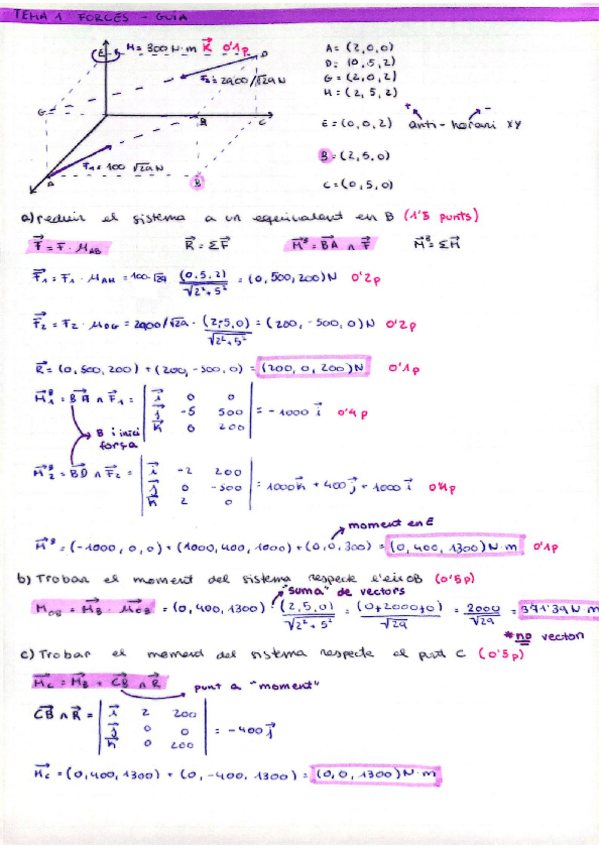 TEMA 1 FORCES - GUIA
E M = 300 N·m K⃗ 0'1p
D
F₂ = 2900/√29 N
G
B
C
F₁ = 100 √29 N
A
B
A = (2,0,0)
D = (0,5,2)
G = (2,0,2)
H = (2,5,2)
+ -
E = (0,0,2) anti-horari xy
B = (2,5,0)
C = (0,5,0)
a) reduir el sistema a un equivalent en B (1'5 punts)
F⃗ = F · μ_AB R⃗ = ΣF⃗ M⃗ᴮ = B⃗A ∧ F⃗ M⃗ᴮ = ΣM⃗
F⃗₁ = F₁ · μ_AH = 100·√29 (0,5,2)/√2²+5² = (0,500,200) N 0'2p
F⃗₂ = F₂ · μ_DG = 2900/√29 · (2,-5,0)/√2²+5² = (200,-500,0) N 0'2p
R⃗ = (0,500,200) + (200,-500,0) = (200,0,200) N 0'1p
M⃗₁ᴮ = B⃗A ∧ F⃗₁ = | i⃗ 0 0 |
| j⃗ -5 500 | = -1000 i⃗ 0'4p
| k⃗ 0 200 |
B i inici força
M⃗₂ᴮ = B⃗D ∧ F⃗₂ = | i⃗ -2 200 |
| j⃗ 0 -500 | = 1000k⃗ + 400j⃗ + 1000i⃗ 0'4p
| k⃗ 2 0 |
moment en E
M⃗ᴮ = (-1000,0,0) + (1000,400,1000) + (0,0,300) = (0,400,1300) N·m 0'1p
b) Trobar el moment del sistema respecte l'eix OB (0'5p)
"suma" de vectors
M_OB = M⃗_B · μ⃗_OB = (0,400,1300) · (2,5,0)/√2²+5² = (0+2000+0)/√29 = 2000/√29 = 371'39 N·m
*no vector
c) Trobar el moment del sistema respecte el punt C (0'5p)
M⃗_C = M⃗_B + C⃗B ∧ R⃗
punt a "moment"
C⃗B ∧ R⃗ = | i⃗ 2 200 |
| j⃗ 0 0 | = -400j⃗
| k⃗ 0 200 |
M⃗_C = (0,400,1300) + (0,-400,1300) = (0,0,1300) N·m